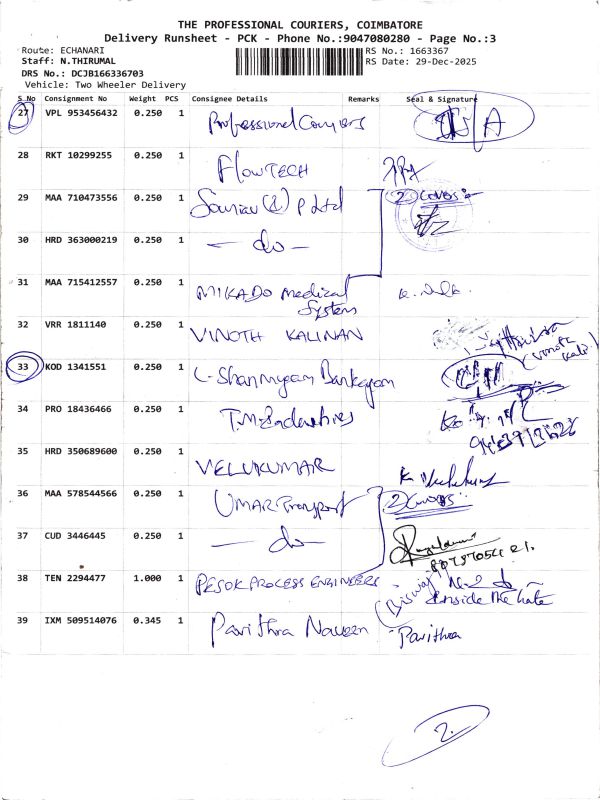 THE PROFESSIONAL COURIERS, COIMBATORE
Delivery Runsheet - PCK - Phone No.:9047080280 - Page No.:3
Route: ECHANARI
RS No.: 1663367
Staff: N.THIRUMAL
RS Date: 29-Dec-2025
DRS No.: DCJB166336703
Vehicle: Two Wheeler Delivery
S No Consignment No Weight PCS Consignee Details Remarks Seal & Signature
27 VPL 953456432 0.250 1 Professional Couriers
28 RKT 10299255 0.250 1 FLOWTECH
29 MAA 710473556 0.250 1 (&) P Ltd 2 COVERS
30 HRD 363000219 0.250 1 - do -
31 MAA 715412557 0.250 1 MIKADO medical
Systems
32 VRR 1811140 0.250 1 VINOTH KALINAN
33 KOD 1341551 0.250 1 L-Shanmugam
34 PRO 18436466 0.250 1
35 HRD 350689600 0.250 1 VELUKUMAR
36 MAA 578544566 0.250 1 UMAR Transport 2 COVERS
37 CUD 3446445 0.250 1 - do -
38 TEN 2294477 1.000 1 PESOK PROCESS ENGINEERS
inside the
39 IXM 509514076 0.345 1 Pavithra Naveen Pavithra
2.